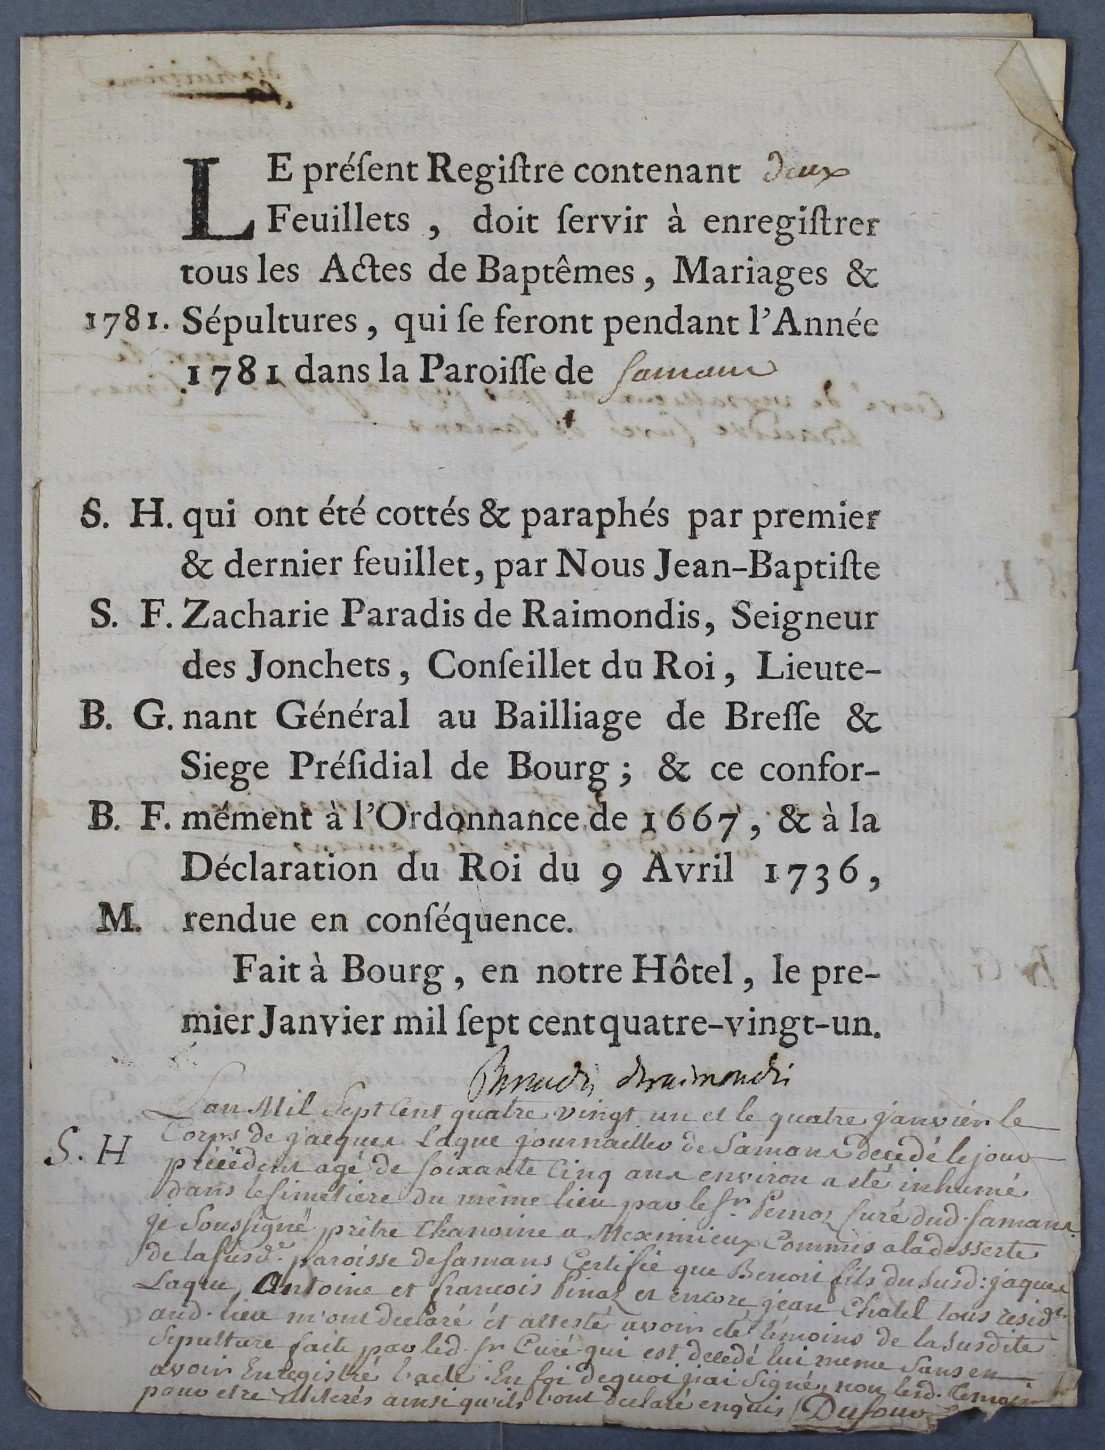 LE préſent Regiſtre contenant deux
Feuillets, doit ſervir à enregiſtrer
tous les Actes de Baptêmes, Mariages &
1781. Sépultures, qui ſe feront pendant l'Année
1781 dans la Paroiſſe de Samans
S. H. qui ont été cottés & paraphés par premier
& dernier feuillet, par Nous Jean-Baptiſte
S. F. Zacharie Paradis de Raimondis, Seigneur
des Jonchets, Conſeillet du Roi, Lieute-
B. G. nant Général au Bailliage de Breſſe &
Siege Préſidial de Bourg; & ce confor-
B. F. mément à l'Ordonnance de 1667, & à la
Déclaration du Roi du 9 Avril 1736,
M. rendue en conſéquence.
Fait à Bourg, en notre Hôtel, le pre-
mier Janvier mil ſept cent quatre-vingt-un.
Paradis deraimondis
L'an Mil Sept Cent quatre vingt un et le quatre janvier le
S. H Corps de jacques Laque journailler de Samans decedé le jour
précédent agé de soixante Cinq ans environ a été inhumé
dans le simetiere du même lieu par le Sr. Pernoz Curé dud. Samans.
je Soussigné prêtre Chanoine a Meximieux Commis a la desserte
de la susde. paroisse de Samans Certifie que Benoit fils du susd: jaques
Laque, Antoine et francois Pinaz et encore jean Chatel tous reside.
aud. lieu m'ont declaré et attesté avoir été témoins de la Susdite
Sepulture faite par led. Sr Curé qui est decedé lui meme Sans en
avoir Enregistré l'acte. En foi de quoi j'ai Signé, non lesd. témoins
pour etre illiterés ainsi qu'ils l'ont declaré enquis Dufour